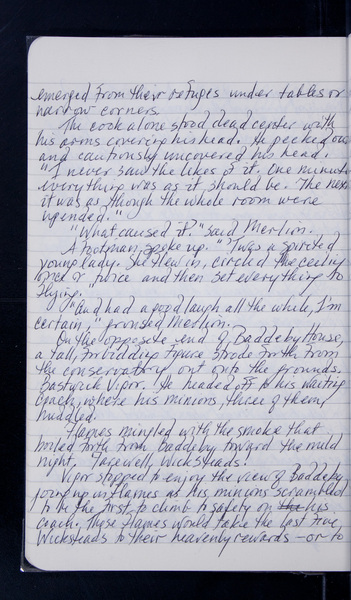 emerged from their refuges under tables or
narrow corners.
The cook alone stood dead center with
his arms covering his head. He peeked out
and cautiously uncovered his head.
"I never saw the likes of it. One minute
everything was as it should be. The next
it was as though the whole room were
upended."
"What caused it?" said Merlin.
A footman spoke up. "Twas a spirited
young lady. She flew in, circled the ceiling
once or twice and then set everything to
flying."
"And had a good laugh all the while, I'm
certain," Merlin.
On the opposite end of Baddeby House,
a tall, forbidding figure strode forth from
the conservatory out onto the grounds.
Bastwick Vipor. He headed off to his waiting
coach, where his minions, three of them,
huddled.
Flames mingled with the smoke that
boiled forth from Baddeby toward the mild
night. Farewell, Wicksteads.
Vipor stopped to enjoy the view of Baddeby
going up in flames as his minions scrambled
to be the first to climb to safety on the his
coach. These flames would take the last five
Wicksteads to their heavenly rewards - or to